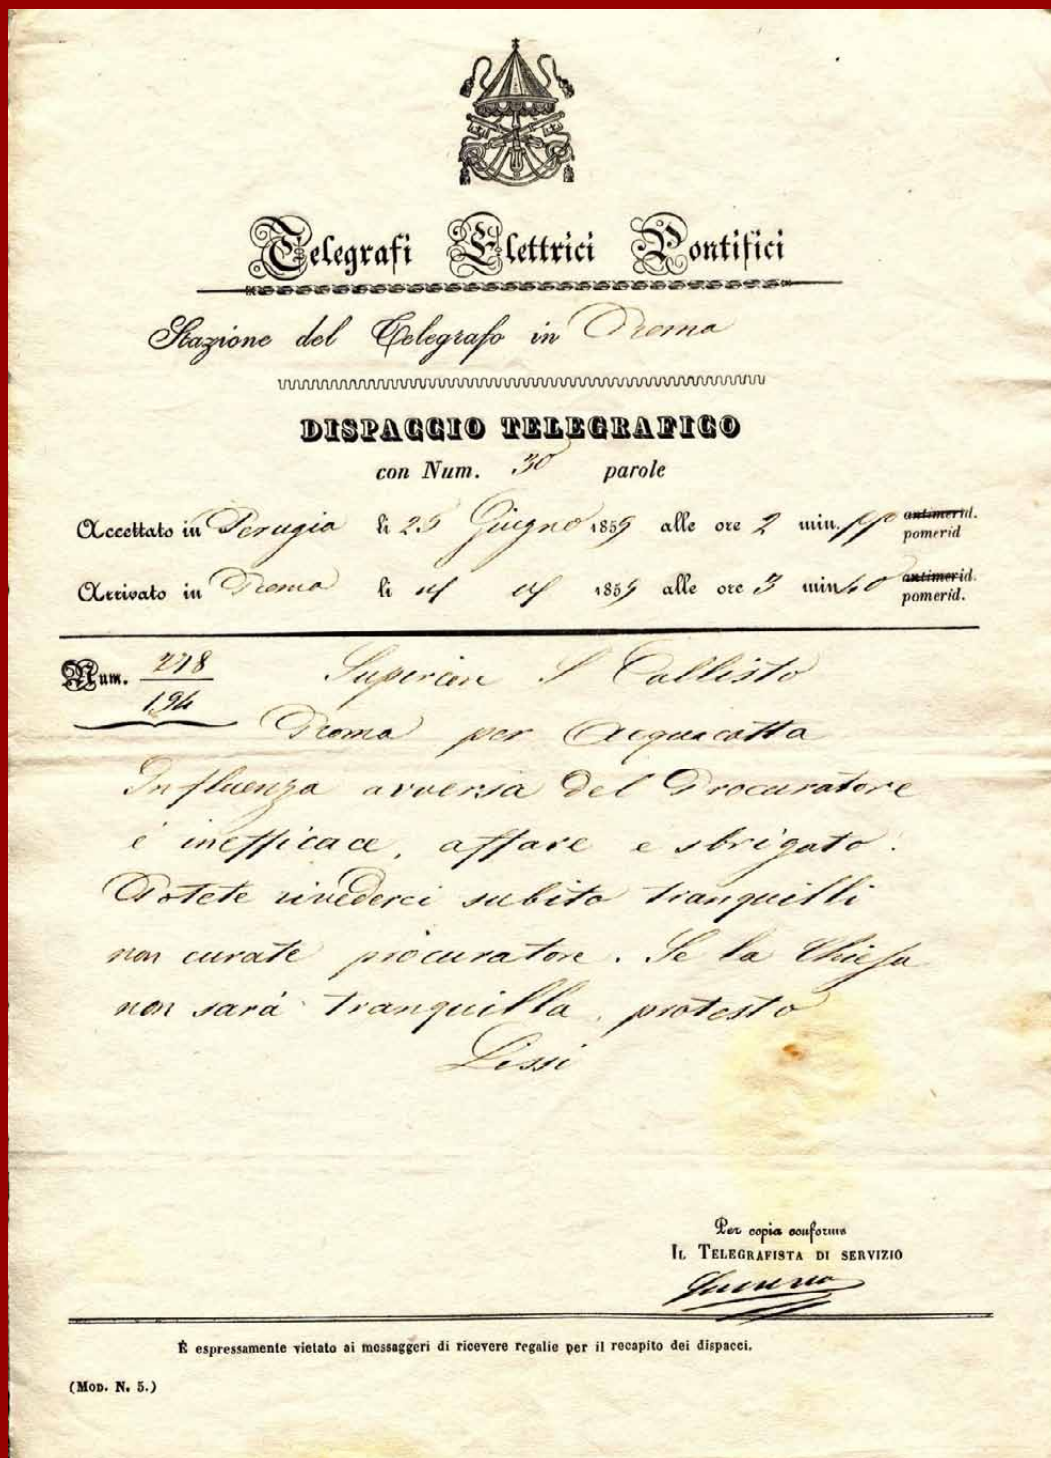 Telegrafi Elettrici Pontifici
Stazione del Telegrafo in Roma
DISPACCIO TELEGRAFICO
con Num. 30 parole
Accettato in Perugia li 25 Giugno 1859 alle ore 2 min. antimerid. pomerid
Arrivato in Roma li 1859 alle ore 3 min 40 antimerid. pomerid.
Num. 278
194
S Callisto
Roma per Acquacotta
Influenza avversa del Procuratore
è inefficace, affare e sbrigato.
Potete rivederci subito tranquilli
non curate procuratore. Se la Chiesa
non sarà tranquilla, protesto
Lessi
Per copia conforme
IL TELEGRAFISTA DI SERVIZIO
È espressamente vietato ai messaggeri di ricevere regalie per il recapito dei dispacci.
(MOD. N. 5.)